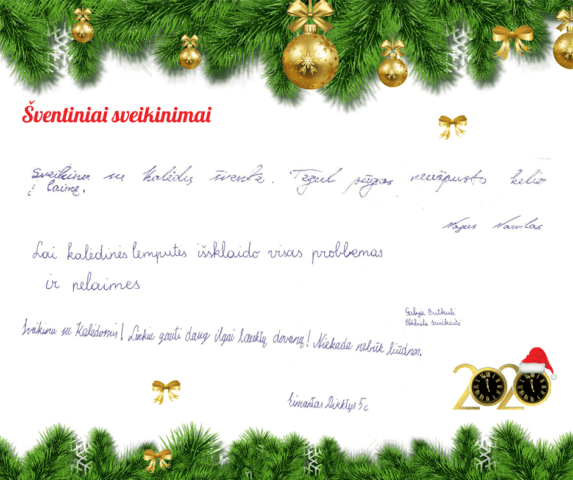 Šventiniai sveikinimai
Sveikinu su Kalėdų švente. Tegul pūgos neužpusto kelio
į laimę.
Lai kalėdinės lemputės išsklaido visas problemas
ir nelaimes
Butkutė
Sveikinu su Kalėdomis! Linkiu gauti daug ilgai lauktų dovanų! Niekada nebūk liūdnas.
5c
2020